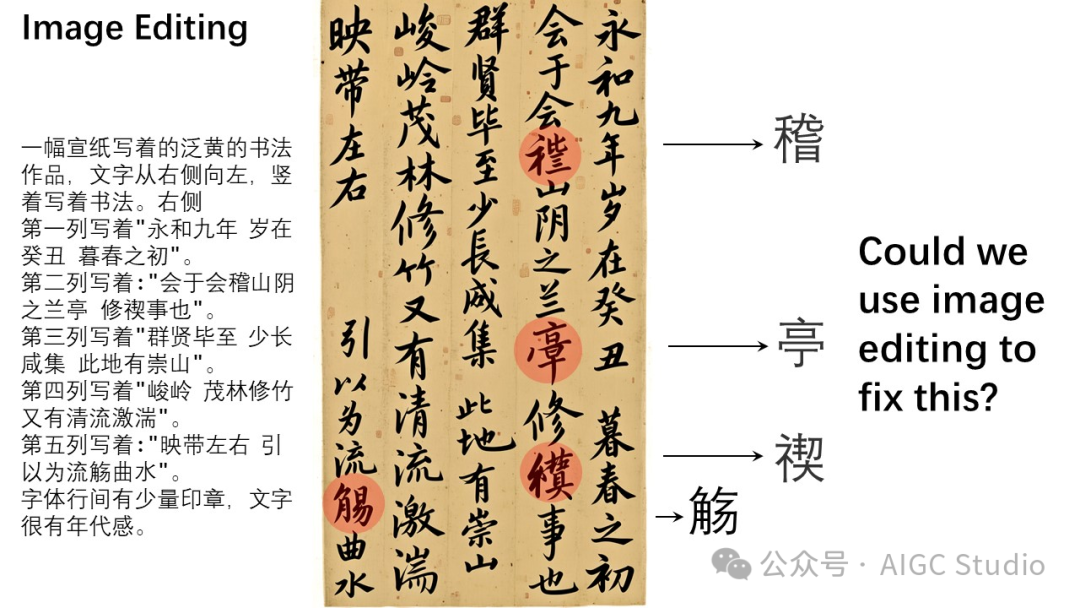 Image Editing
一幅宣纸写着的泛黄的书法
作品，文字从右侧向左，竖
着写着书法。右侧
第一列写着"永和九年 岁在
癸丑 暮春之初"。
第二列写着:"会于会稽山阴
之兰亭 修禊事也"。
第三列写着"群贤毕至 少长
咸集 此地有崇山"。
第四列写着"峻岭 茂林修竹
又有清流激湍"。
第五列写着:"映带左右 引
以为流觞曲水"。
字体行间有少量印章，文字
很有年代感。
永和九年岁在癸丑 暮春之初
会于会山阴之兰 修事也
群贤毕至少長咸集 此地有崇山
峻岭茂林修竹又有清流激湍
映带左右 引以为流曲水
稽
亭
禊
觞
Could we
use image
editing to
fix this?
公众号 · AIGC Studio